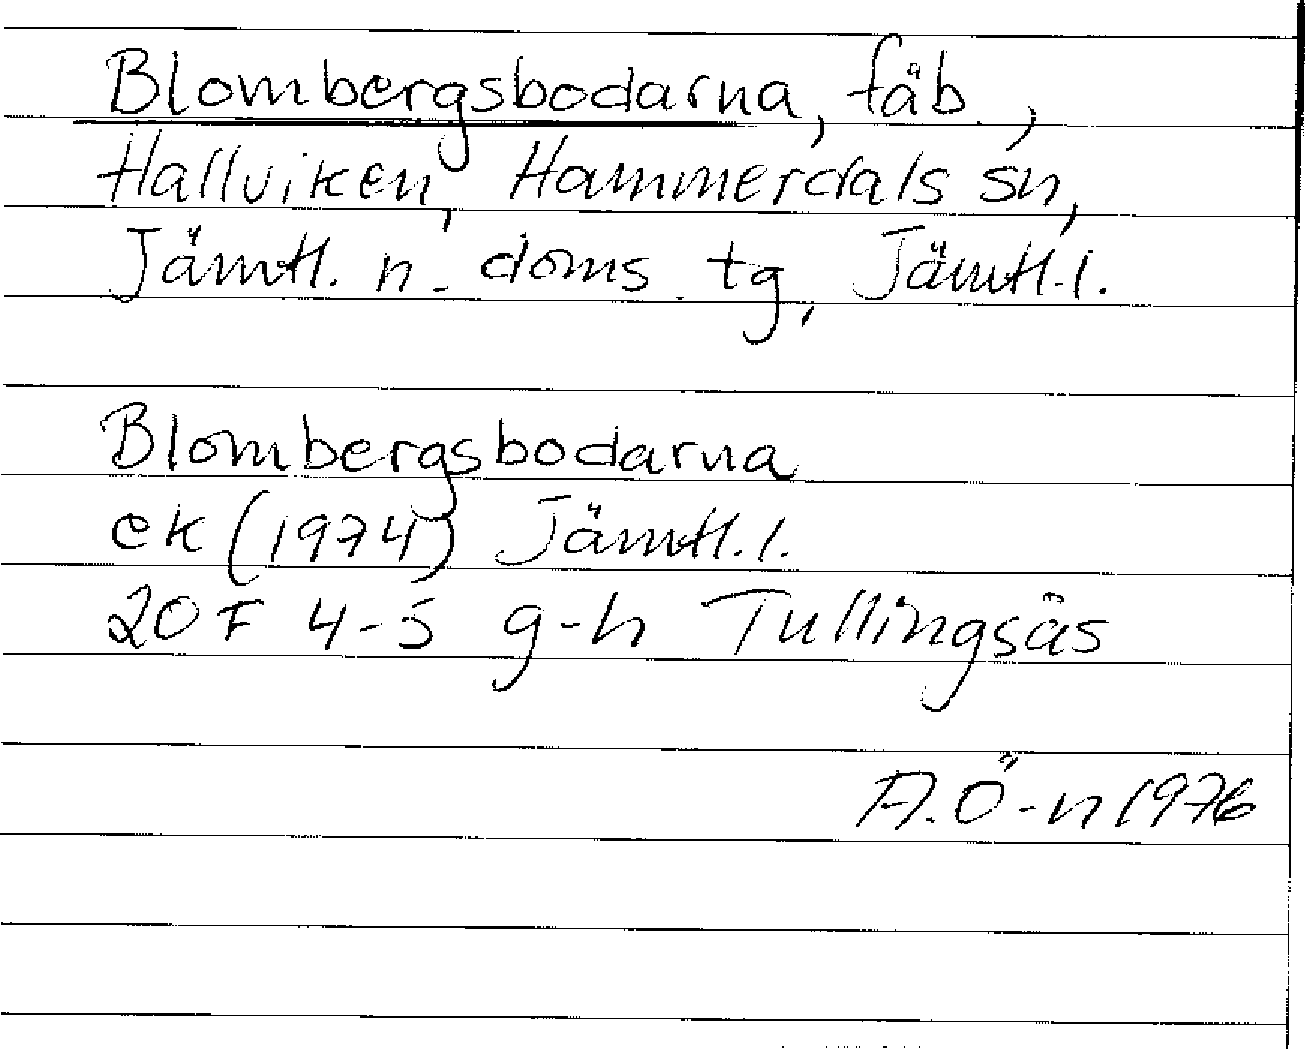 Blombergsbodarna, fäb.,
Hallviken, Hammerdals sn,
Jämtl. n. doms. tg, Jämtl.l.
Blombergsbodarna
ek (1974) Jämtl.l.
20F 4-5 g-h Tullingsås
A.Ö-n 1976